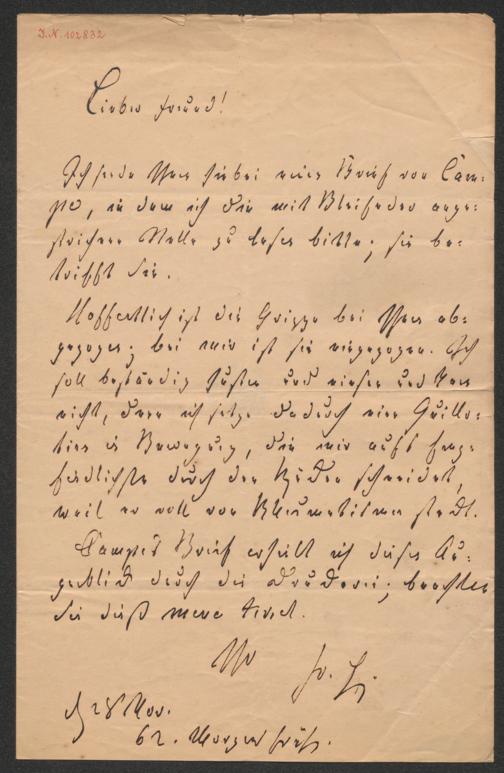 I.N. 102832
Lieber Freund!
Ich sende Ihnen hiebei einen Brief von Cam-
pe, in dem ich die mit Bleifeder ange-
strichene Stelle zu lesen bitte; sie be-
trifft Sie.
Hoffentlich ist die Grippe bei Ihnen ab-
gezogen; bei mir ist sie eingezogen. Ich
soll beständig husten und niesen und kann
nicht, denn ich setze dadurch eine Guillo-
tine in Bewegung, die mir aufs
durch den Rücken schneidet,
weil er voll von Rheumatismen steckt.
Campes Brief erhielt ich diesen Au-
genblick durch die Druckerei; beachten
Sie dieß
Ihr Fr. H.
d 28 Nov.
62. Morgens früh.